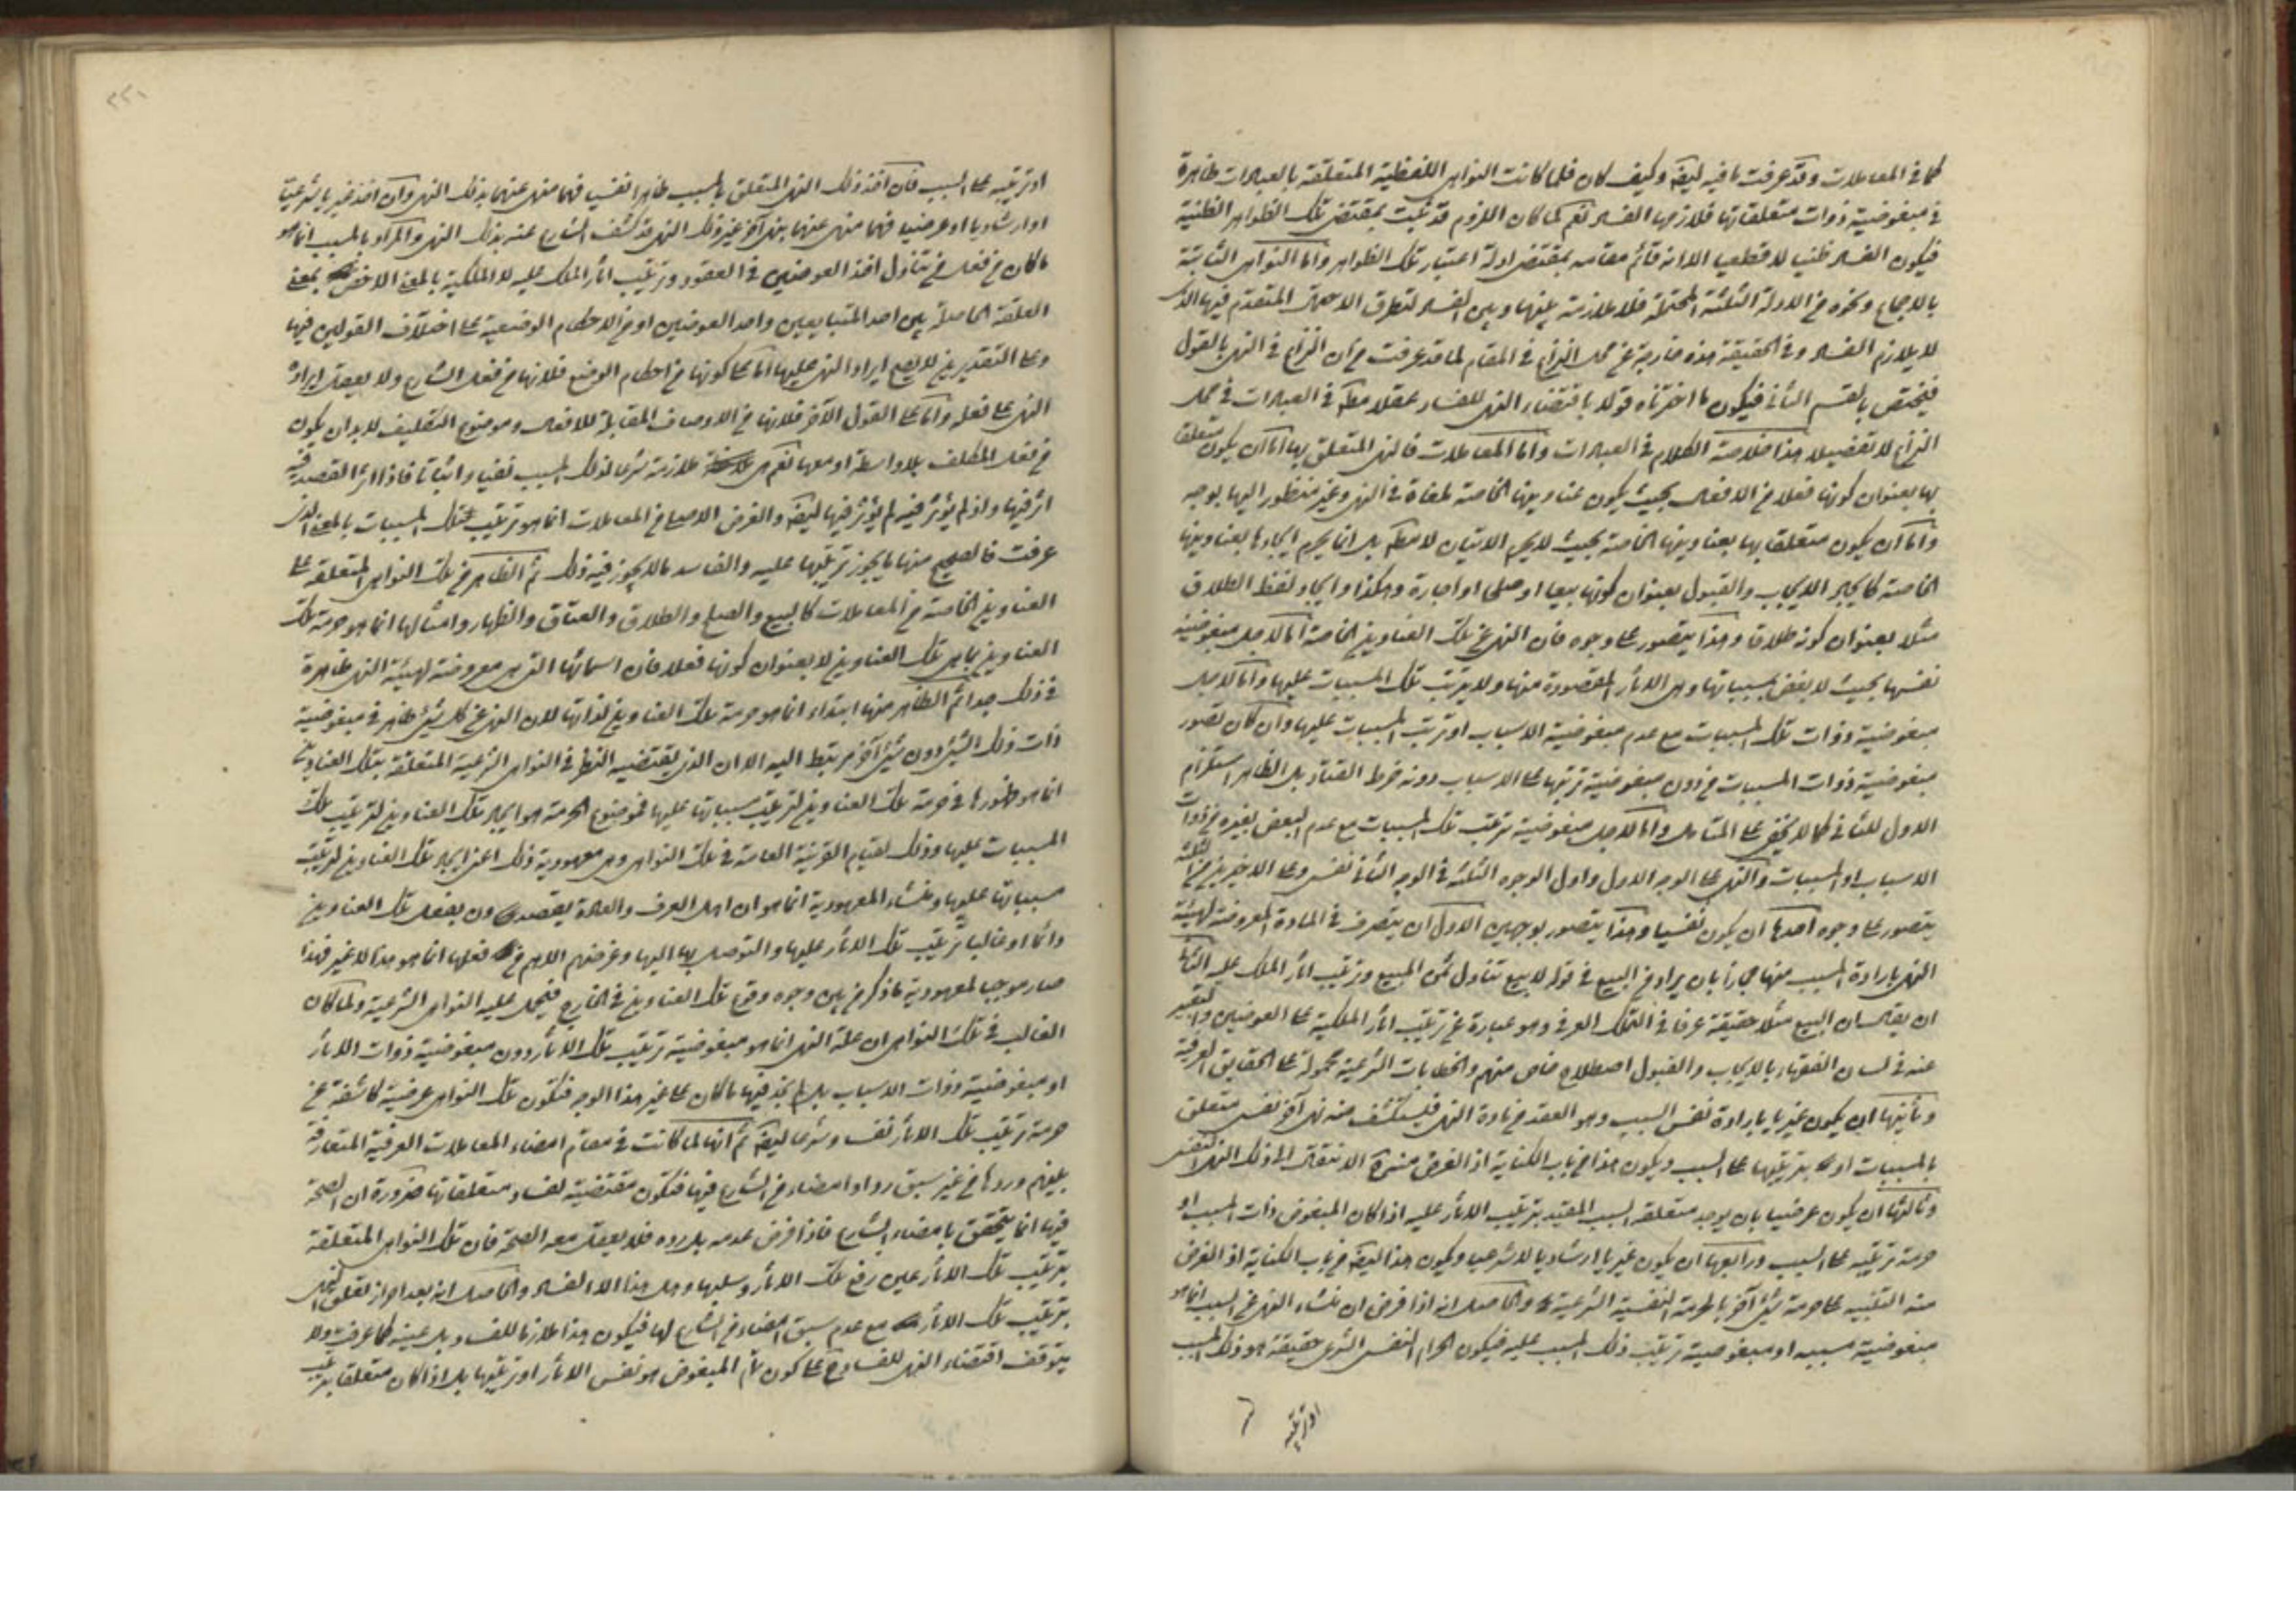 كما في المعاملات وقد عرفت ما فيه ايضا وكيف كان فلما كانت النواهي اللفظية المتعلقة بالعبادات ظاهرة
في مبغوضية ذوات متعلقاتها فلازمها الفساد نعم لما كان اللزوم قد ثبت بمقتضى تلك الظواهر الظنية
فيكون الفساد ظنيا لا قطعيا الا انه قائم مقامه بمقتضى ادلة اعتبار تلك الظواهر واما النواهي الثابتة
بالاجماع ونحوه من الادلة اللبية المحتملة فلا ملازمة بينها وبين الفساد لتطرق الاحتمال المتقدم فيها الذي
لا يلازم الفساد وفي الحقيقة هذه خارجة عن محل النزاع في المقام لما قد عرفت من ان النزاع في النهي بالقول
فيختص بالقسم الثاني فيكون ما اخترناه قولا باقتضاء النهي للفساد عقلا مطلقا في العبادات في محل
النزاع لا تفصيلا هذا خلاصة الكلام في العبادات واما المعاملات فالنهي المتعلق بها اما ان يكون متعلقا
بها بعنوان كونها فعلا من الافعال بحيث يكون عناوينها الخاصة ملغاة في النهي وغير منظور اليها بوجه
واما ان يكون متعلقا بها بعناوينها الخاصة بحيث لا يحرم الاتيان لا مطلقا بل انما يحرم ايجادها بعناوينها
الخاصة كايجاد الايجاب والقبول بعنوان كونها بيعا او صلحا او اجارة وهكذا وايجاد لفظ الطلاق
مثلا بعنوان كونه طلاقا وهذا يتصور على وجوه فان النهي عن تلك العناوين الخاصة اما لاجل مبغوضية
نفسها بحيث لا يبغض مسبباتها وهي الاثار المقصودة منها ولا يترتب تلك المسببات عليها واما لاجل
مبغوضية ذوات تلك المسببات مع عدم مبغوضية الاسباب او ترتب المسببات عليها وان كان تصور
مبغوضية ذوات المسببات من دون مبغوضية ترتبها على الاسباب دونه خرط القتاد بل الظاهر استلزام
الاول للثاني كما لا يخفى على المتامل واما لاجل مبغوضية ترتب تلك المسببات مع عدم البغض لغيره من ذوات
الاسباب او المسببات والنهي على الوجه الاول واول الوجوه الثلثة في الوجه الثاني نفسي وعلى الاخيرين من الثلثة
يتصور على وجوه احدها ان يكون نفسيا وهذا يتصور بوجهين الاول ان يتصرف في المادة المعروضة لهيئة
النهي بارادة المسبب منها مجازا بان يراد من البيع في قوله لا تبع تناول ثمن المبيع وترتيب اثار الملك عليه الثاني
ان يقال ان البيع مثلا حقيقة عرفا في التملك العرفي وهو عبارة عن ترتيب اثار الملكية على العوضين والتعبير
عنه في لسان الفقهاء بالايجاب والقبول اصطلاح خاص منهم والخطابات الشرعية محمولة على الحقايق العرفية
وثانيها ان يكون غيريا بارادة نفس السبب وهو العقد من مادة النهي فيستكشف منه نهي آخر نفسي متعلق
بالمسببات او بترتبها على السبب ويكون هذا من باب الكناية اذ الغرض منه الانتقال الى ذلك النهي النفسي
وثالثها ان يكون عرضيا بان يوجد متعلقه السبب المقيد بترتيب الاثار عليه اذا كان المبغوض ذات المسبب او
حرمة ترتبه على السبب ورابعها ان يكون غيريا ارشاديا لا شرعيا ويكون هذا ايضا من باب الكناية اذ الغرض
منه التنبيه على حرمة شيء آخر بالحرمة النفسية الشرعية والحاصل انه اذا فرض ان منشاء النهي عن السبب انما هو
مبغوضية مسببه او مبغوضية ترتيب ذلك المسبب عليه فيكون الحرام النفسي الشرعي حقيقة هو ذلك المسبب
او ترتبه
او ترتبه على السبب فان اخذ ذلك النهي المتعلق بالسبب ظاهرا نفسيا فهما منهي عنهما بذلك النهي وان اخذ غيريا شرعيا
او ارشاديا او عرضيا فهما منهي عنهما بنهي آخر غير ذلك النهي قد كشف الشارع عنه بذلك النهي والمراد بالمسبب انما هو
ما كان من فعل من تناول اخذ العوضين في العقود وترتيب اثار الملك عليه لا الملكية بالمعنى الاخص بمعنى
العلقة الحاصلة بين احد المتبايعين واحد العوضين او من الاحكام الوضعية على اختلاف القولين فيها
وعلى التقديرين لا يصح ايراد النهي عليها اما على كونها من احكام الوضع فلانها من فعل الشارع ولا يعقل ايراد
النهي على فعله واما على القول الآخر فلانها من الاوصاف المقابلة للافعال وموضوع التكليف لا بد ان يكون
من فعل المكلف بلا واسطة او معها نعم هي ملازمة شرعا لذلك المسبب نفيا واثباتا فاذا اثر القصد فيه
اثر فيها واذ لم يؤثر فيه لم يؤثر فيها ايضا والغرض الاصلي من المعاملات انما هو ترتيب تلك المسببات بالمعنى الذي
عرفت فالصحيح منها ما يجوز ترتبها عليه والفاسد ما لا يجوز فيه ذلك ثم الظاهر من تلك النواهي المتعلقة على
العناوين الخاصة من المعاملات كالبيع والصلح والطلاق والعتاق والظهار وامثالها انما هو حرمة تلك
العناوين بما هي تلك العناوين لا بعنوان كونها فعلا فان اسمائها التي هي معروضة لهيئة النهي ظاهرة
في ذلك جدا ثم الظاهر منها ابتداء انما هو حرمة تلك العناوين لذاتها لان النهي عن كل شيء ظاهر في مبغوضية
ذات ذلك الشيء دون شيء آخر مرتبط اليه الا ان الذي يقتضيه النظر في النواهي الشرعية المتعلقة بتلك العناوين
انما هو ظهورها في حرمة تلك العناوين لترتيب مسبباتها عليها فموضوع الحرمة هو ايجاد تلك العناوين لترتيب تلك
المسببات عليها وذلك لقيام القرينة العامة في تلك النواهي وهي معهودية ذلك اعني ايجاد تلك العناوين لترتيب
مسبباتها عليها ومنشاء المعهودية انما هو ان اهل العرف والعادة يقصدون بفعل تلك العناوين
دائما او غالبا ترتيب تلك الاثار عليها والتوصل بها اليها وغرضهم الاهم من فعلها انما هو هذا لا غير فهذا
صار موجبا لمعهودية ما ذكر من بين وجوه وقوع تلك العناوين في الخارج فيحمل عليه النواهي الشرعية ولما كان
الغالب في تلك النواهي ان علة النهي انما هو مبغوضية ترتيب تلك الاثار دون مبغوضية ذوات الاثار
او مبغوضية ذوات الاسباب بل لم نجد فيها ما كان على غير هذا الوجه فتكون تلك النواهي عرضية كاشفة عن
حرمة ترتيب تلك الاثار نفسا وشرعا ايضا ثم انها لما كانت في مقام امضاء المعاملات العرفية المتعارفة
بينهم وردها من غير سبق رد او امضاء من الشارع فيها فتكون مقتضية لفساد متعلقاتها ضرورة ان الصحة
فيها انما يتحقق بامضاء الشارع فاذا فرض عدمه بل رده فلا يعقل معه الصحة فان تلك النواهي المتعلقة
بترتيب تلك الاثار عين رفع تلك الاثار وسلبها وهل هذا الا الفساد والحاصل انه بعد احراز تعلق النهي
بترتيب تلك الاثار مع عدم سبق امضاء من الشارع لها فيكون هذا ملازما للفساد بل عينه كما عرفت ولا
يتوقف اقتضاء النهي للفساد على كون تمام المبغوض هو نفس الاثار او ترتبها بل اذا كان متعلقا بترتيب